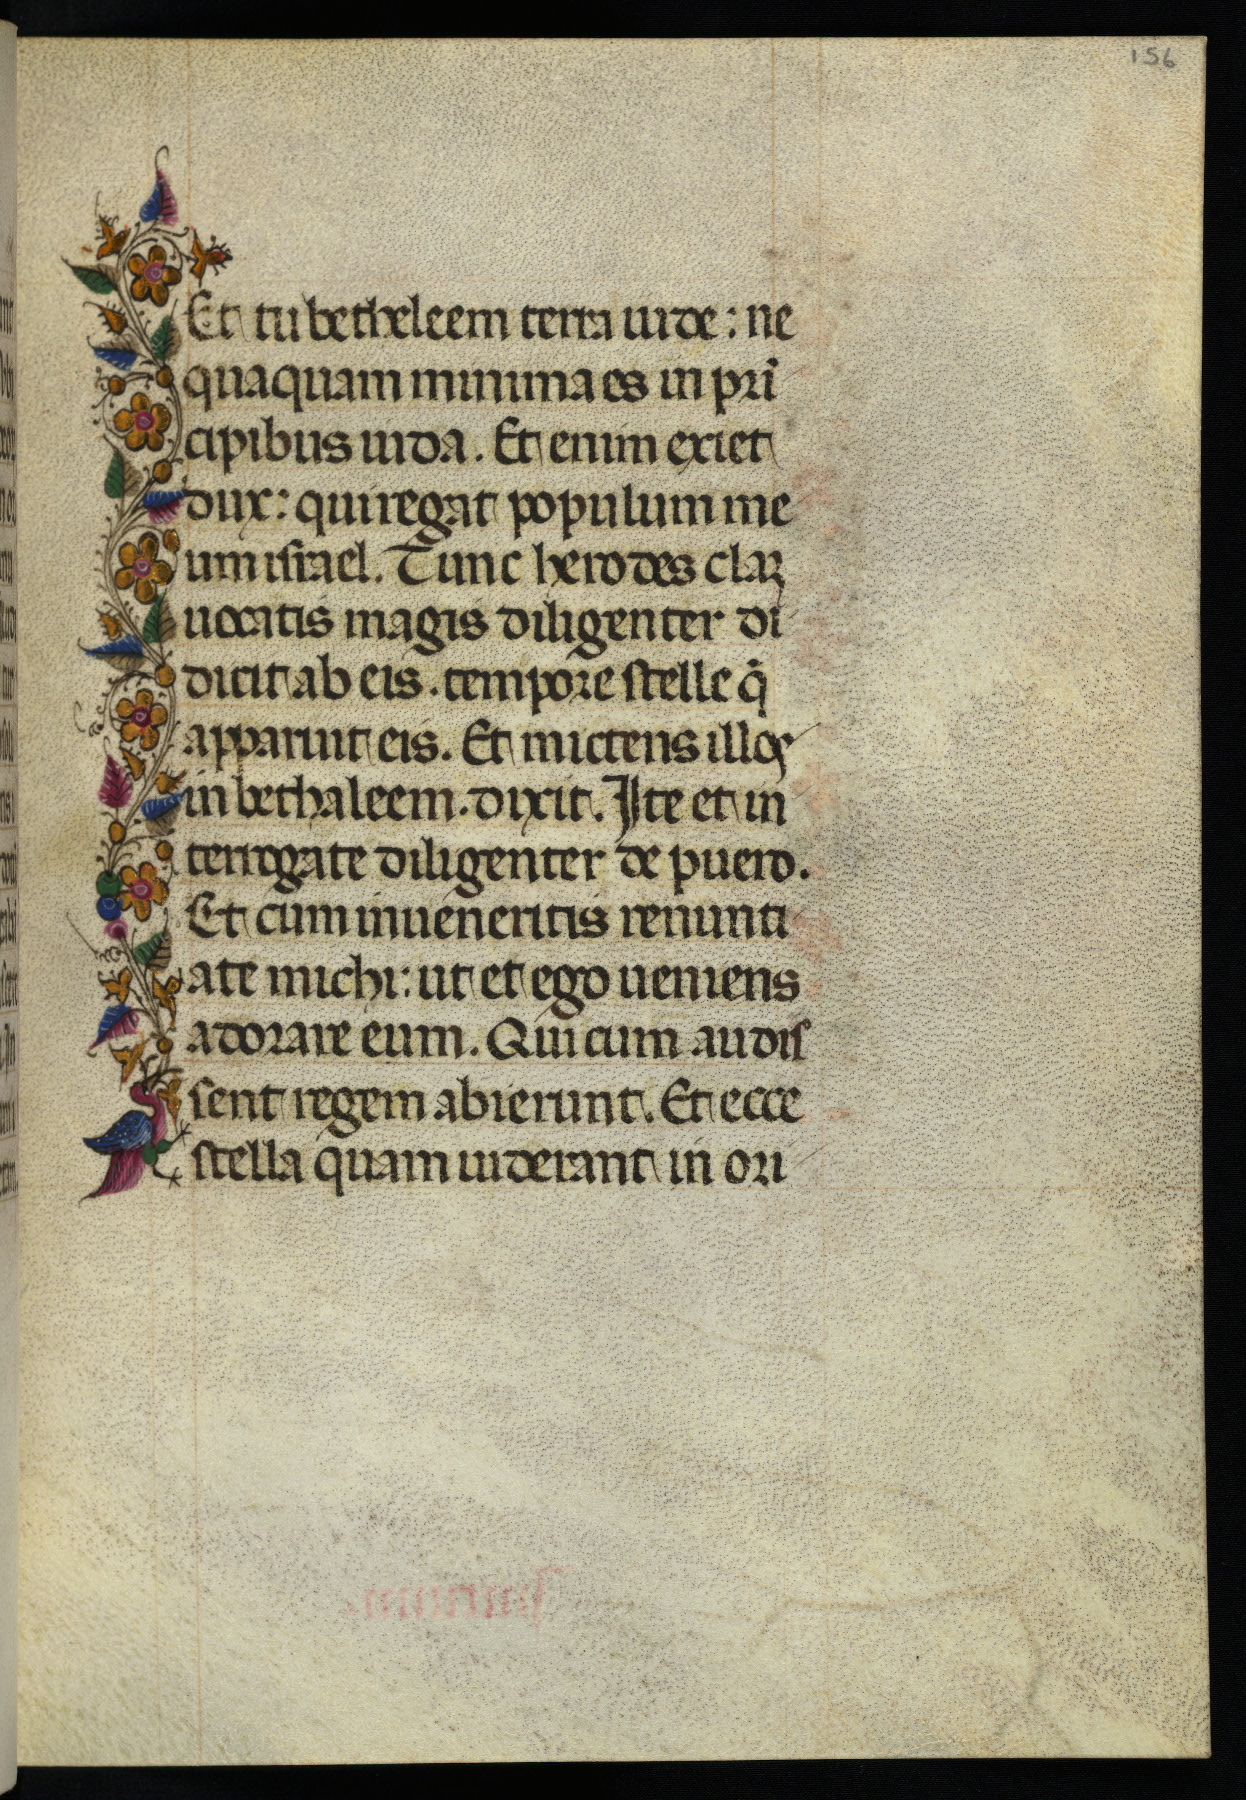 156
Et tu betheleem terra iude : ne
quaquam minima es in pri̅
cipibus iuda . Et enim exiet
dux : qui regat populum me
um israel . Tunc herodes cla&#x27;
uocatis magis diligenter di
dicit ab eis . tempore stelle q̄
apparuit eis . Et mictens illos
in bethaleem . dixit . Ite et in
terrogate diligenter de puero .
Et cum inueneritis renunti
ate michi : ut et ego ueniens
adorare eum . Qui cum audis
sent regem abierunt . Et ecce
stella quam uiderant in ori